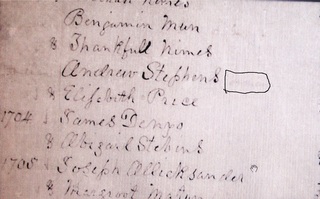 Benjamin Mun
& Thankfull Nimes
Andrew Stephens
& Elisebeth Price
1704 James Denyo
& Abigail Stebens
1705 Joseph Allicksander
&